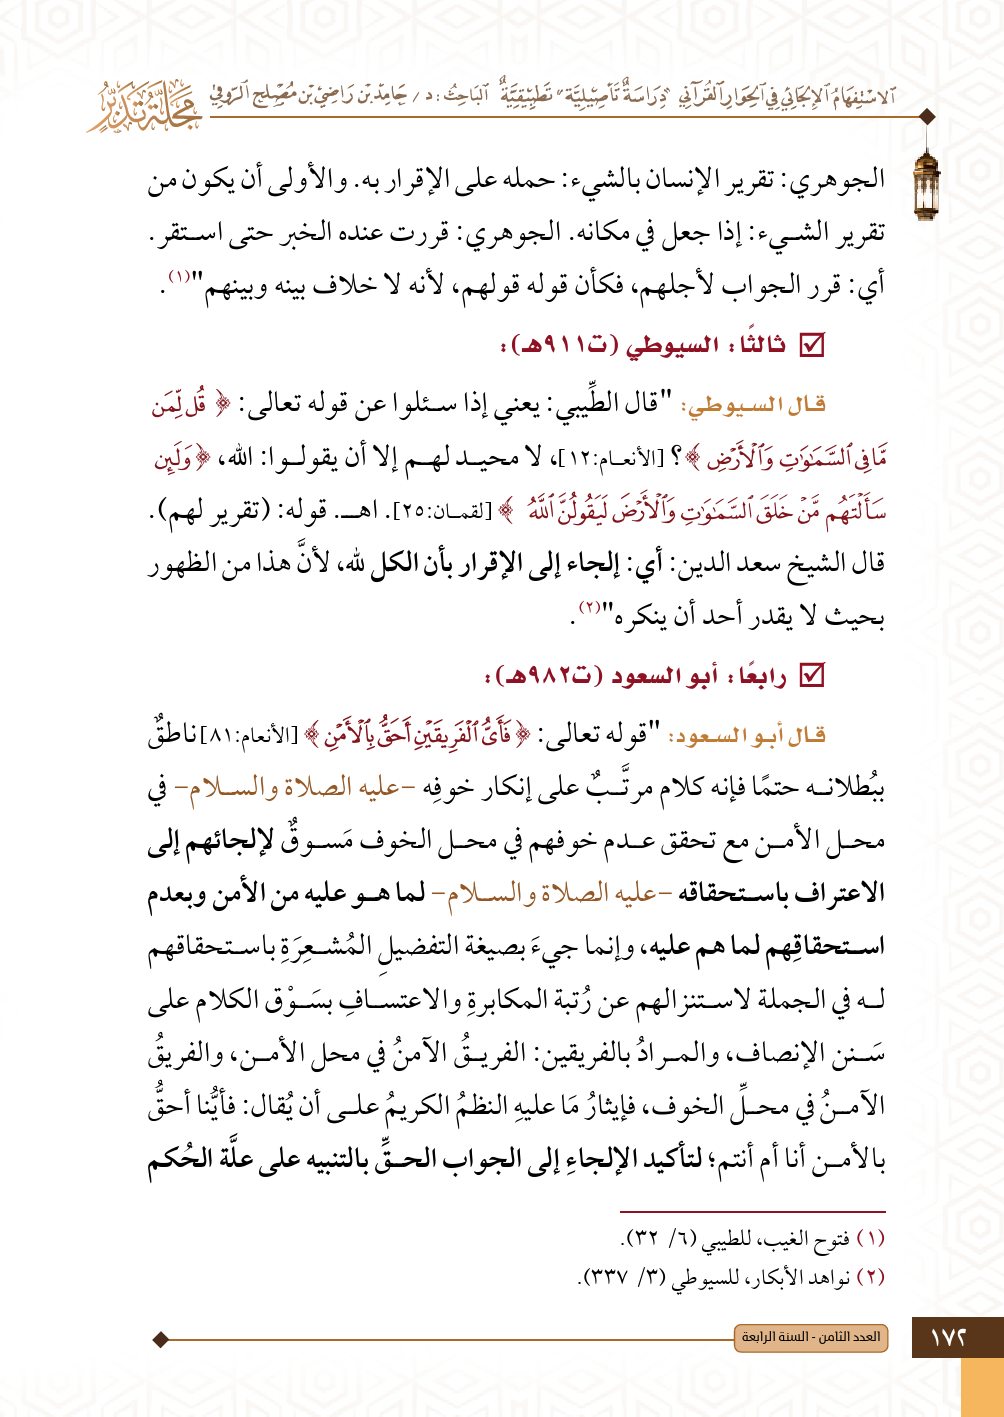 الاستفهام الإلجائي في الحوار القرآني "دراسة تأصيلية" تطبيقية الباحث: د / حامد بن راضي بن مصلح الروقي
مجلة تدبر
الجوهري: تقرير الإنسان بالشيء: حمله على الإقرار به. والأولى أن يكون من
تقرير الشيء: إذا جعل في مكانه. الجوهري: قررت عنده الخبر حتى استقر.
أي: قرر الجواب لأجلهم، فكأن قوله قولهم، لأنه لا خلاف بينه وبينهم"(١).
ثالثًا: السيوطي (ت٩١١هـ):
قال السيوطي: "قال الطِّيبي: يعني إذا سئلوا عن قوله تعالى: ﴿ قُل لِّمَن
مَّا فِي ٱلسَّمَٰوَٰتِ وَٱلْأَرْضِ ﴾؟ [الأنعام:١٢]، لا محيد لهم إلا أن يقولوا: الله، ﴿وَلَئِن
سَأَلْتَهُم مَّنْ خَلَقَ ٱلسَّمَٰوَٰتِ وَٱلْأَرْضَ لَيَقُولُنَّ ٱللَّهُ ﴾ [لقمان:٢٥]. اهـ. قوله: (تقرير لهم).
قال الشيخ سعد الدين: أي: إلجاء إلى الإقرار بأن الكل لله، لأنَّ هذا من الظهور
بحيث لا يقدر أحد أن ينكره"(٢).
رابعًا: أبو السعود (ت٩٨٢هـ):
قال أبو السعود: "قوله تعالى: ﴿ فَأَىُّ ٱلْفَرِيقَيْنِ أَحَقُّ بِٱلْأَمْنِ ﴾ [الأنعام:٨١] ناطقٌ
ببُطلانه حتمًا فإنه كلام مرتَّبٌ على إنكار خوفِه -عليه الصلاة والسلام- في
محل الأمن مع تحقق عدم خوفهم في محل الخوف مَسوقٌ لإلجائهم إلى
الاعتراف باستحقاقه -عليه الصلاة والسلام- لما هو عليه من الأمن وبعدم
استحقاقِهم لما هم عليه، وإنما جيءَ بصيغة التفضيلِ المُشعِرَةِ باستحقاقهم
له في الجملة لاستنزالهم عن رُتبة المكابرةِ والاعتسافِ بسَوْق الكلام على
سَنن الإنصاف، والمرادُ بالفريقين: الفريقُ الآمنُ في محل الأمن، والفريقُ
الآمنُ في محلِّ الخوف، فإيثارُ مَا عليهِ النظمُ الكريمُ على أن يُقال: فأيُّنا أحقُّ
بالأمن أنا أم أنتم؛ لتأكيد الإلجاءِ إلى الجواب الحقِّ بالتنبيه على علَّة الحُكم
(١) فتوح الغيب، للطيبي (٦/ ٣٢).
(٢) نواهد الأبكار، للسيوطي (٣/ ٣٣٧).
العدد الثامن - السنة الرابعة
١٧٢